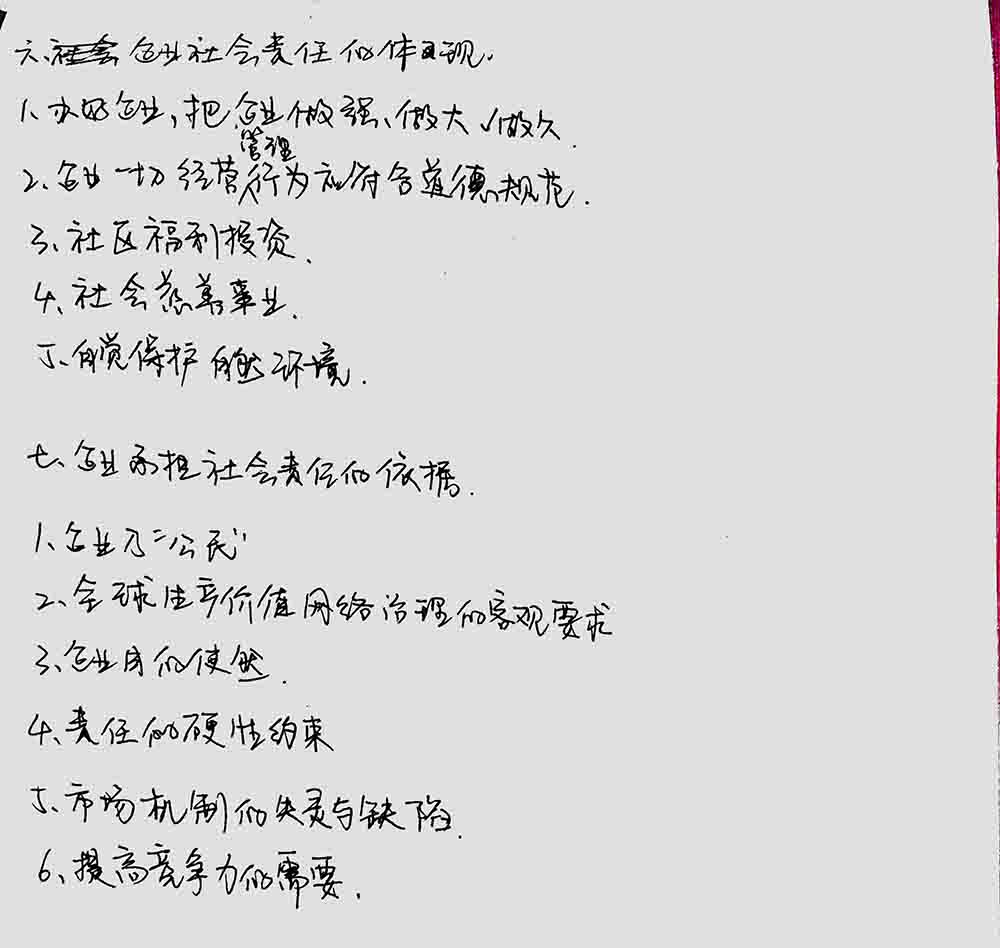 六、企业社会责任的体现.
1、办好企业,把企业做强、做大、做久.
2、企业一切经营管理行为应符合道德规范.
3、社区福利投资.
4、社会慈善事业.
5、自觉保护自然环境.
七、企业承担社会责任的依据.
1、企业乃“公民”
2、全球生产价值网络治理的客观要求
3、企业目的使然.
4、责任的硬性约束
5、市场机制的失灵与缺陷.
6、提高竞争力的需要.